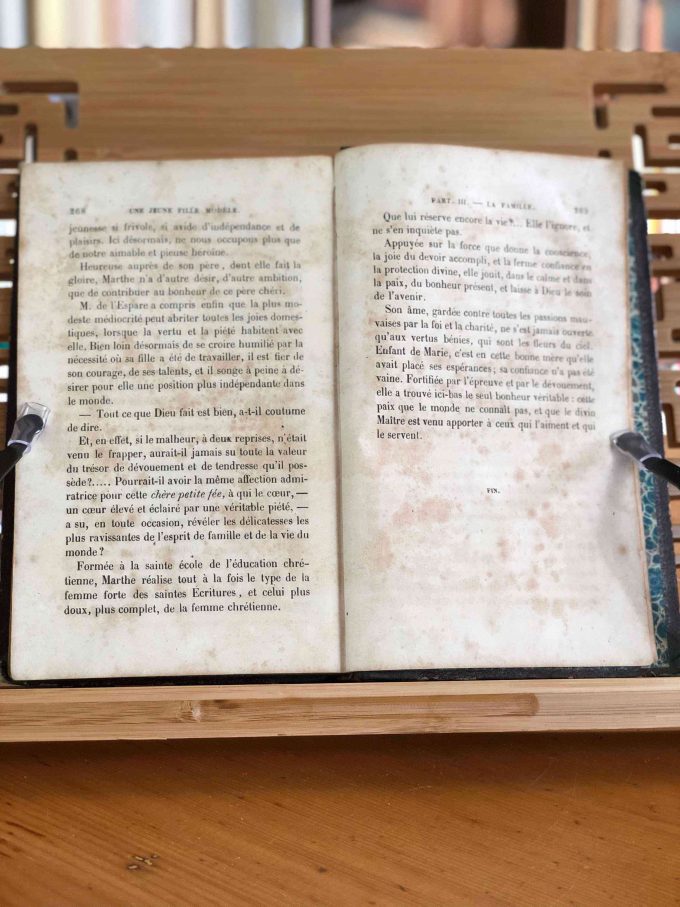 268 UNE JEUNE FILLE MODÈLE.
jeunesse si frivole, si avide d'indépendance et de
plaisirs. Ici désormais, ne nous occupons plus que
de notre aimable et pieuse héroïne.
Heureuse auprès de son père, dont elle fait la
gloire, Marthe n'a d'autre désir, d'autre ambition,
que de contribuer au bonheur de ce père chéri.
M. de l'Espare a compris enfin que la plus mo-
deste médiocrité peut abriter toutes les joies domes-
tiques, lorsque la vertu et la piété habitent avec
elle. Bien loin désormais de se croire humilié par la
nécessité où sa fille a été de travailler, il est fier de
son courage, de ses talents, et il songe à peine à dé-
sirer pour elle une position plus indépendante dans
le monde.
— Tout ce que Dieu fait est bien, a-t-il coutume
de dire.
Et, en effet, si le malheur, à deux reprises, n'était
venu le frapper, aurait-il jamais su toute la valeur
du trésor de dévouement et de tendresse qu'il pos-
sède?..... Pourrait-il avoir la même affection admi-
ratrice pour cette chère petite fée, à qui le cœur, —
un cœur élevé et éclairé par une véritable piété, —
a su, en toute occasion, révéler les délicatesses les
plus ravissantes de l'esprit de famille et de la vie du
monde ?
Formée à la sainte école de l'éducation chré-
tienne, Marthe réalise tout à la fois le type de la
femme forte des saintes Ecritures, et celui plus
doux, plus complet, de la femme chrétienne.
PART. III. — LA FAMILLE. 269
Que lui réserve encore la vie?... Elle l'ignore, et
ne s'en inquiète pas.
Appuyée sur la force que donne la conscience,
la joie du devoir accompli, et la ferme confiance en
la protection divine, elle jouit, dans le calme et dans
la paix, du bonheur présent, et laisse à Dieu le soin
de l'avenir.
Son âme, gardée contre toutes les passions mau-
vaises par la foi et la charité, ne s'est jamais ouverte
qu'aux vertus bénies, qui sont les fleurs du ciel.
Enfant de Marie, c'est en cette bonne mère qu'elle
avait placé ses espérances; sa confiance n'a pas été
vaine. Fortifiée par l'épreuve et par le dévouement,
elle a trouvé ici-bas le seul bonheur véritable : cette
paix que le monde ne connaît pas, et que le divin
Maître est venu apporter à ceux qui l'aiment et qui
le servent.
FIN.